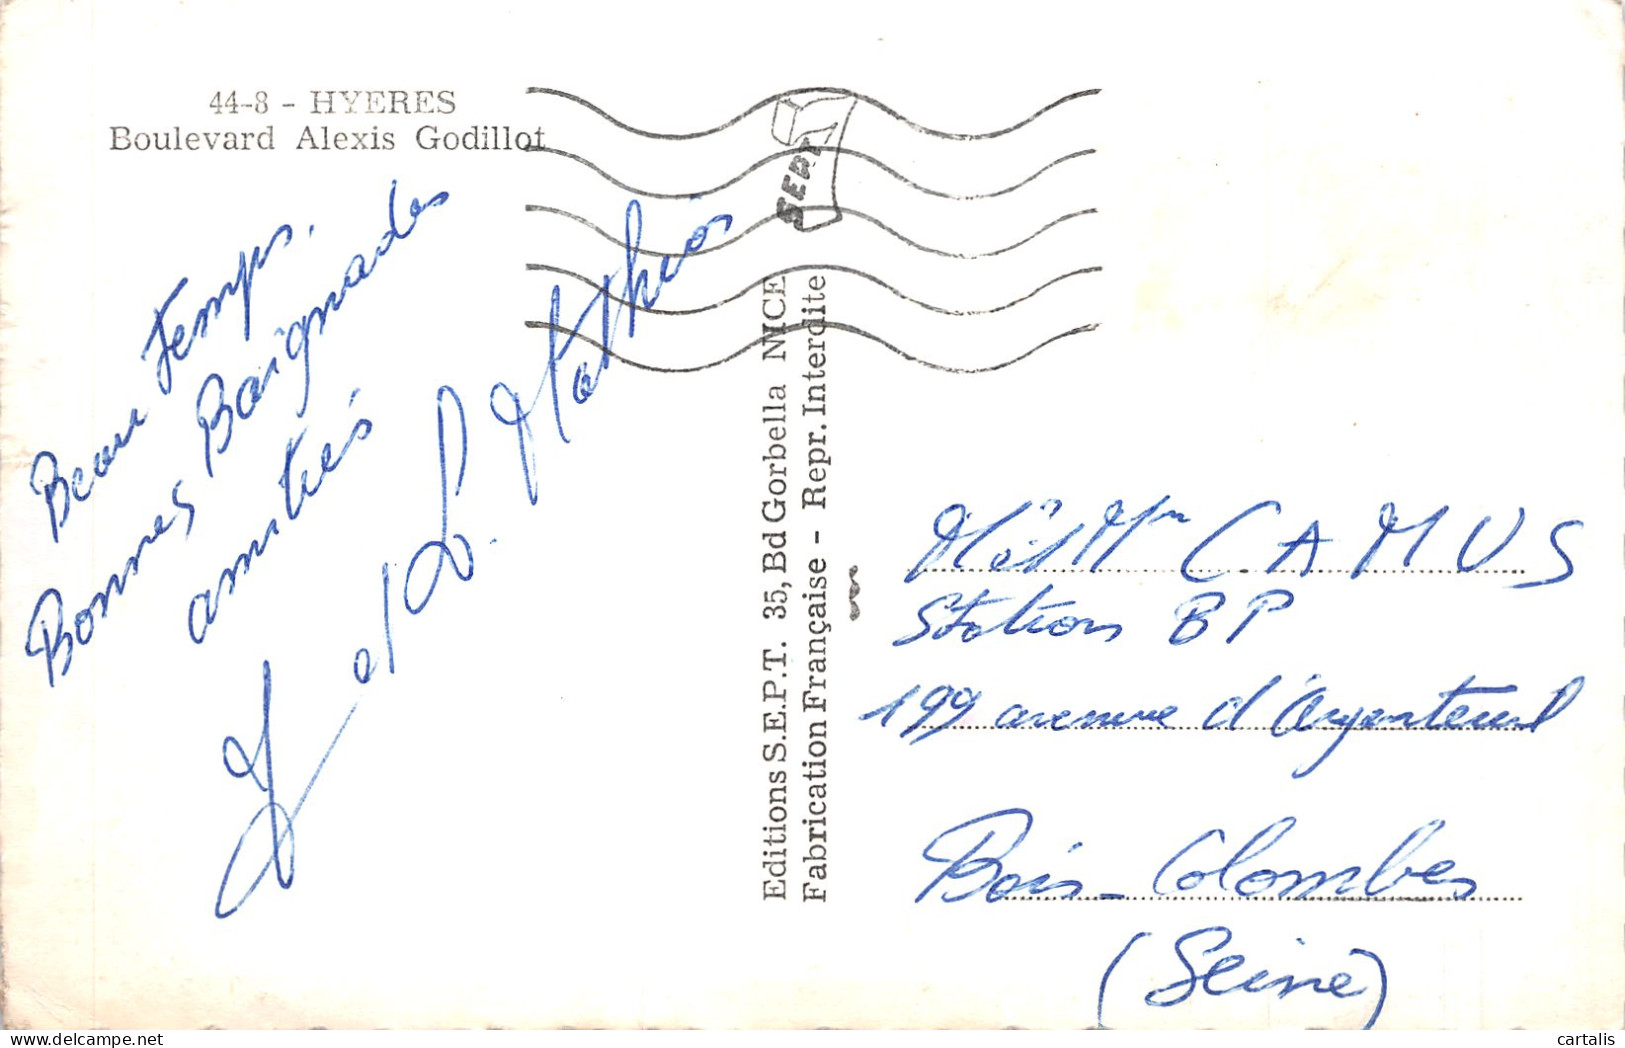 44-8 - HYERES
Boulevard Alexis Godillot
Beau temps.
Bonnes Baignades
amitiés
J et L Mathios
SEPT
Editions S.E.P.T. 35, Bd Gorbella NICE
Fabrication Française - Repr. Interdite
CAMUS
Station BP
199 avenue d'Argenteuil
Bois-Colombes
(Seine)
cartalis